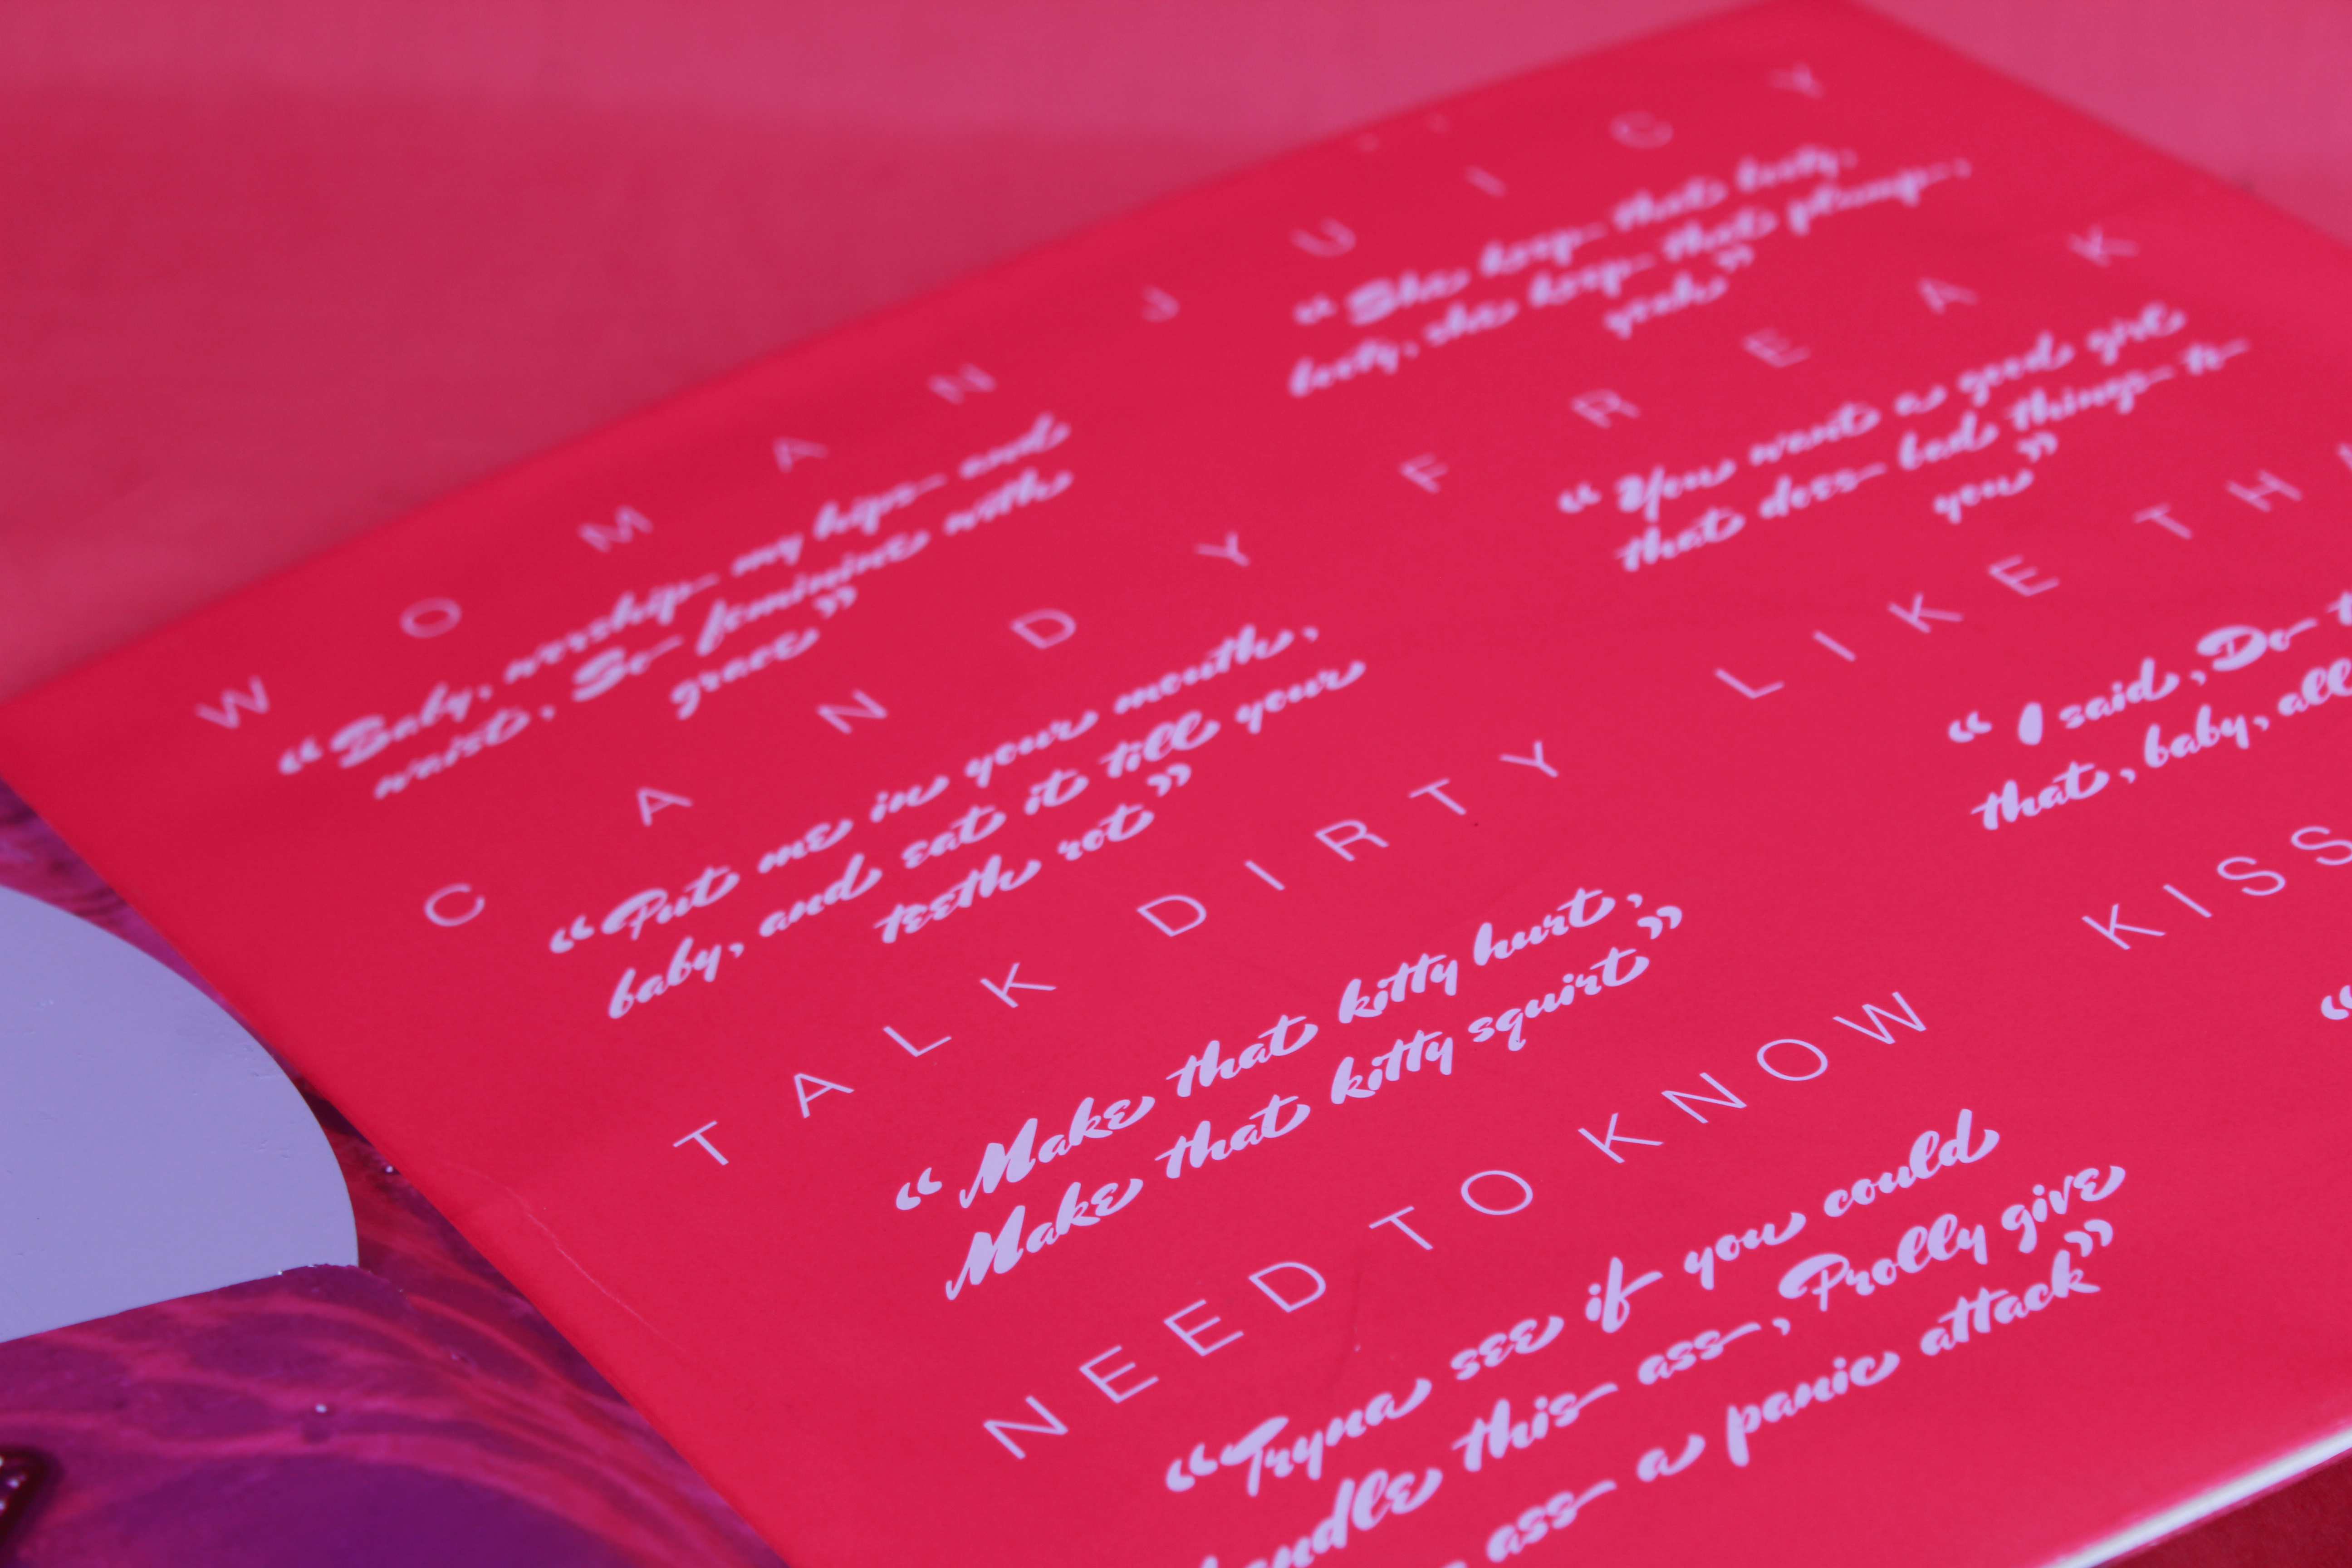 WOMAN
“Baby, worship my hips and
waist, So feminine with
grace”
JUICY
“She keep that booty,
booty, she keep that plump,
yeah”
CANDY
“Put me in your mouth,
baby, and eat it till your
teeth rot”
FREAK
“You want a good girl
that does bad things to
you”
TALK DIRTY
“Make that kitty hurt,
Make that kitty squirt”
LIKE TH
“I said, Do
that, baby, all
NEED TO KNOW
“Tryna see if you could
handle this ass, Prolly give
ass a panic attack”
KISS
“